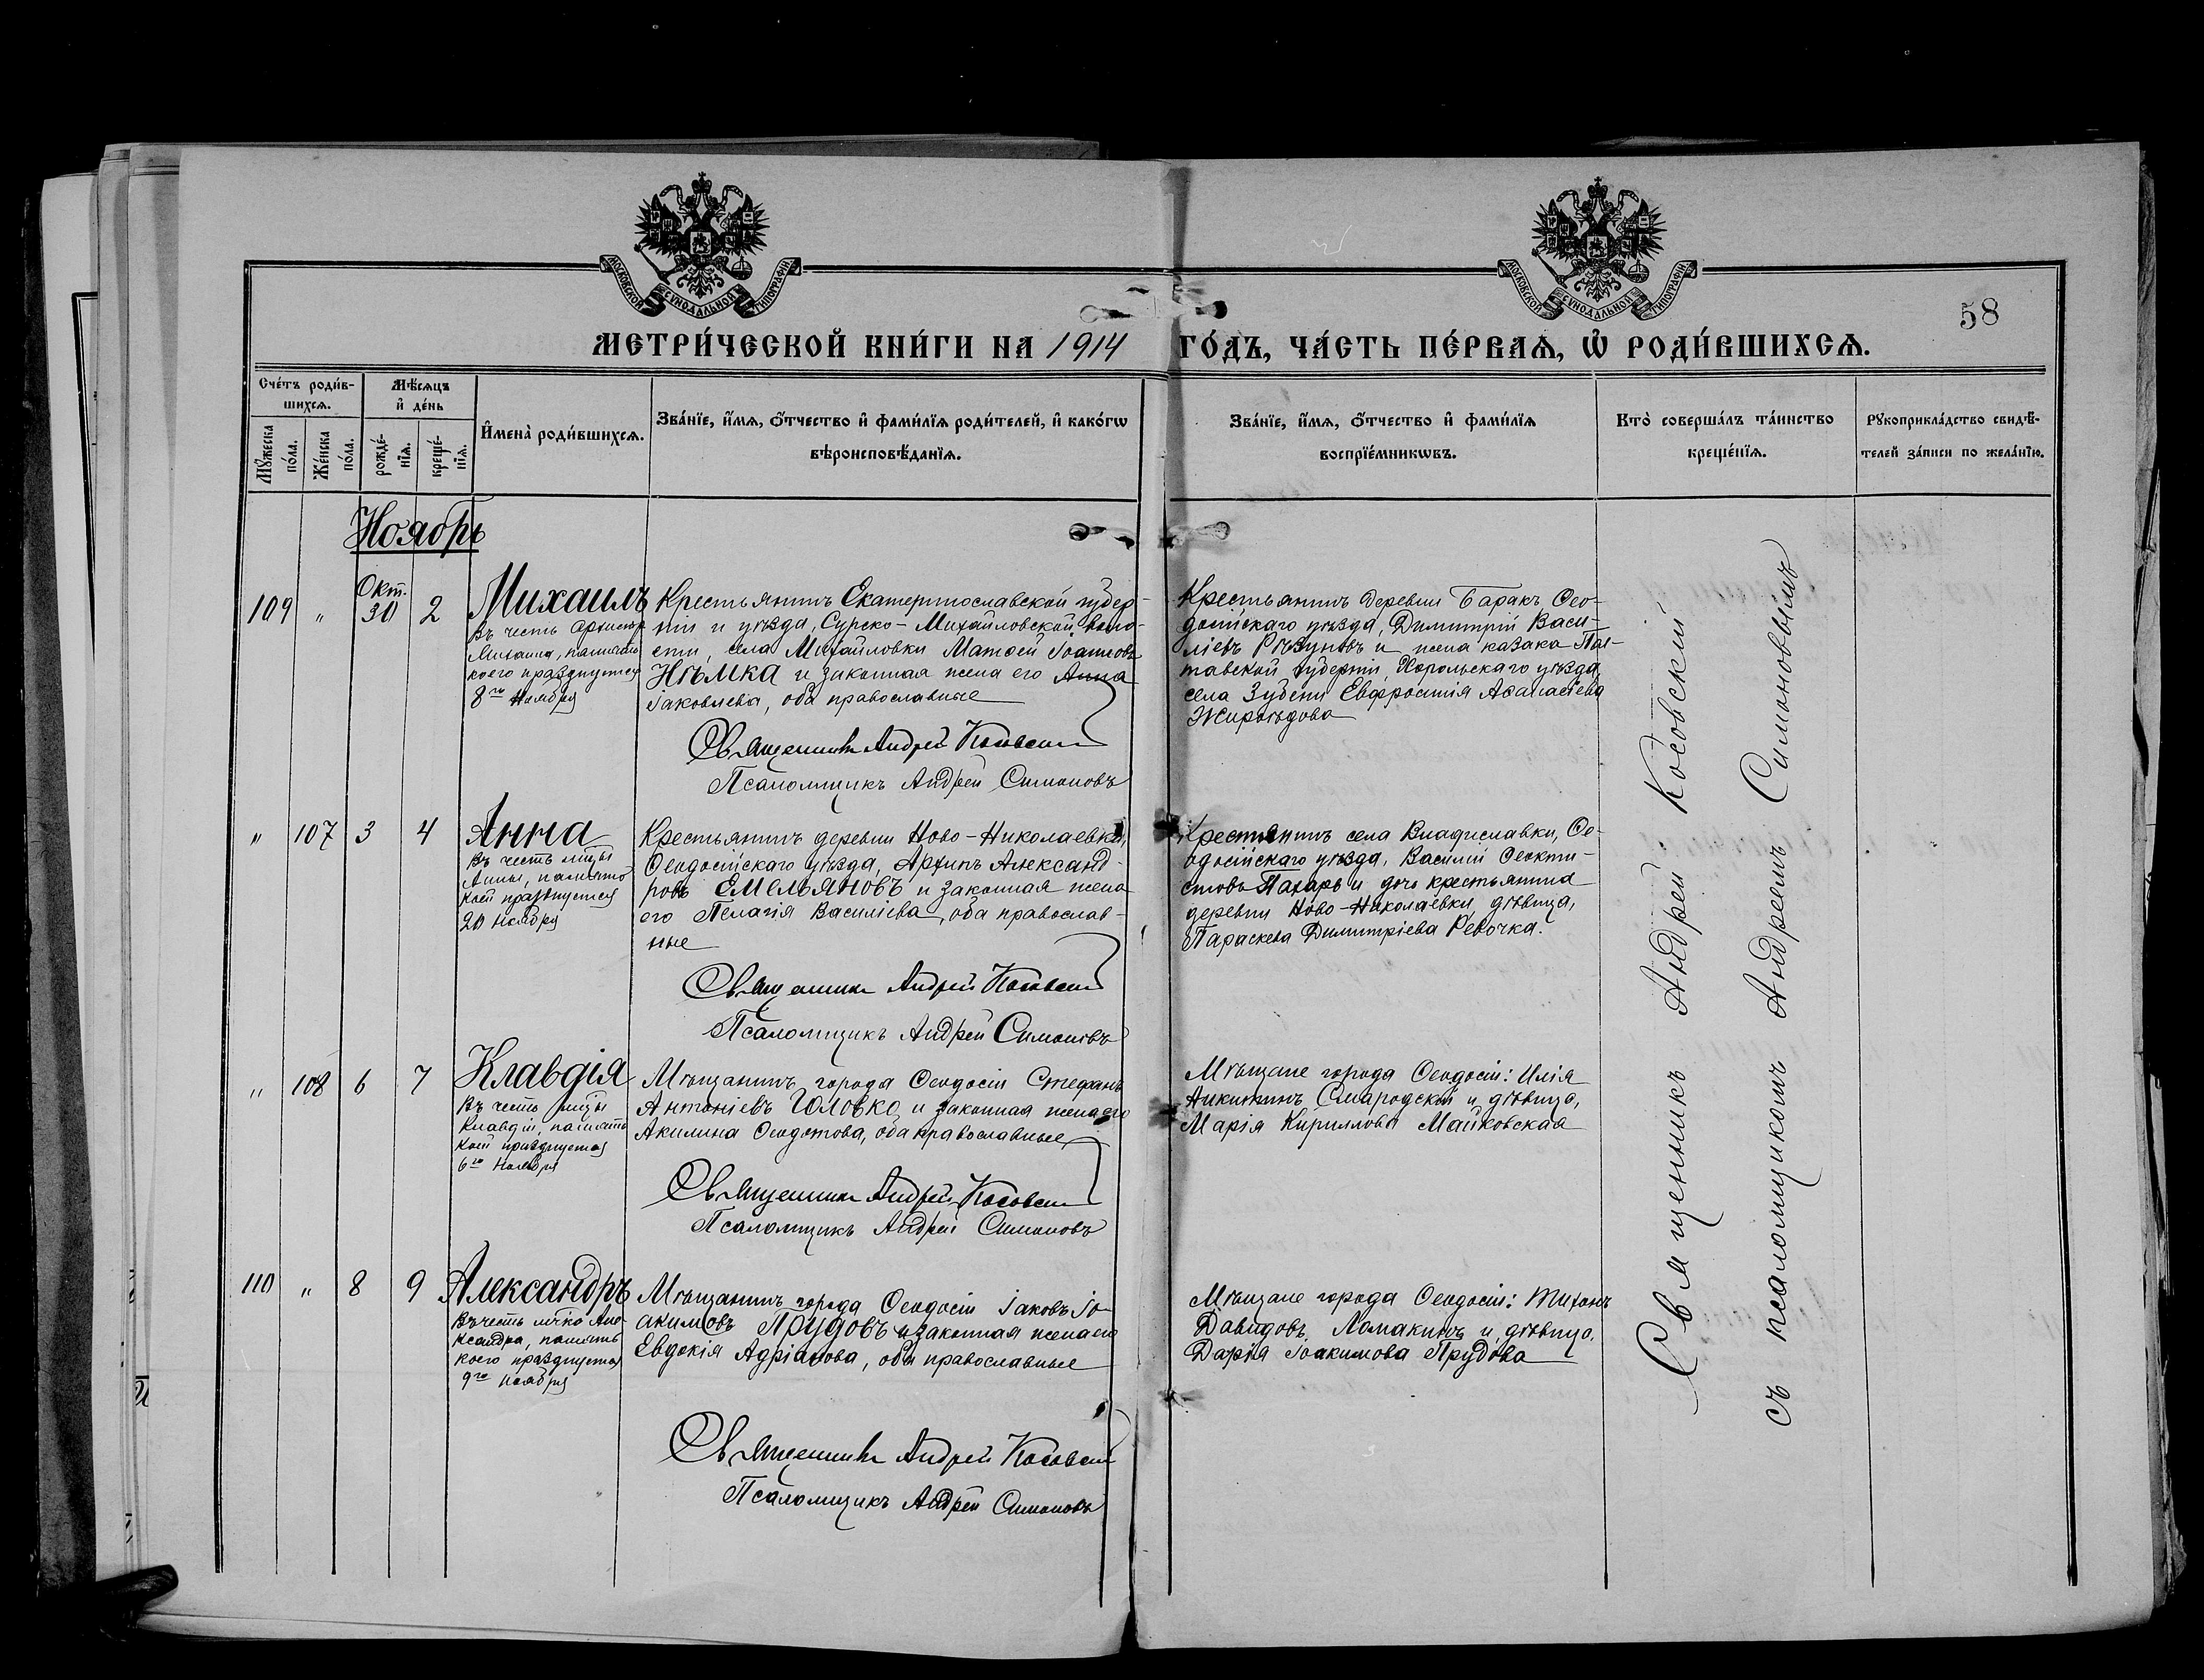 МОСКОВСКОЙ СѴНОДАЛЬНОЙ ТИПОГРАФІИ
МОСКОВСКОЙ СѴНОДАЛЬНОЙ ТИПОГРАФІИ
58
МЕТРИ́ЧЕСКОЙ КНИ́ГИ НА 1914 ГО́ДЪ, ЧА́СТЬ ПЕ́РВАѦ, Ѡ҆ РОДИ́ВШИХСѦ.
Сче́тъ роди́в-
шихсѧ.
Мѣ́сѧцъ
и҆ де́нь
Мꙋ́жеска
по́ла.
Же́нска
по́ла.
рожде́-
нїѧ.
креще́-
нїѧ.
И҆мена̀ роди́вшихсѧ.
Зва́нїе, и҆́мѧ, ѻ҆́тчество и҆ фами́лїѧ роди́телей, и҆ како́гѡ
вѣроисповѣ́данїѧ.
Зва́нїе, и҆́мѧ, ѻ҆́тчество и҆ фами́лїѧ
воспрїе́мникѡвъ.
Кто̀ соверша́лъ та́инство
креще́нїѧ.
Рꙋкоприкла́дство свидѣ́-
телей за́писи по жела́нїю.
Ноябрь
109 " Окт. 30 2
Михаилъ
Въ честь Архистр.
Михаила, память
коего празднуется
8го Ноября
Крестьянинъ Екатеринославской губер-
ніи и уѣзда, Сурско-Михайловской воло-
сти, села Михайловки Матѳей Іоанновъ
Нѣмка и законная жена его Анна
Іаковлева, оба православные
Священникъ Андрей Косовскій
Псаломщикъ Андрей Симоновъ
Крестьянинъ деревни Баракъ Ѳео-
досійскаго уѣзда, Димитрій Васи-
ліевъ Рѣзуновъ и жена казака Пол-
тавской губерніи, Хорольскаго уѣзда,
села Зубени Евфросинія Аѳанасіева
Жироѣдова
" 107 3 4
Анна
Въ честь мцы
Анны, память
коей празднуется
20 Ноября
Крестьянинъ деревни Ново-Николаевки,
Ѳеодосійскаго уѣзда, Архипъ Александ-
ровъ Емельяновъ и законная жена
его Пелагія Василіева, оба православ-
ные
Священникъ Андрей Косовскій
Псаломщикъ Андрей Симоновъ
Крестьянинъ села Владиславки, Ѳе-
одосійскаго уѣзда, Василій Ѳеокти-
стовъ Пахарь и дочь крестьянина
деревни Ново-Николаевки, дѣвица,
Параскева Димитріева Ревочка.
" 108 6 7
Клавдія
Въ честь мцы
Клавдіи, память
коей празднуется
6го Ноября
Мѣщанинъ города Ѳеодосіи Стефанъ
Антоніевъ Головко и законная жена его
Акилина Ѳеодотова, оба православные
Священникъ Андрей Косовскій
Псаломщикъ Андрей Симоновъ
Мѣщане города Ѳеодосіи: Илія
Никитинъ Смародскій и дѣвица,
Марія Кириллова Майковская
110 " 8 9
Александръ
Въ честь мчка Але-
ксандра, память
коего празднуется
9го Ноября
Мѣщанинъ города Ѳеодосіи Іаковъ Іо-
акимовъ Прудовъ и законная жена его
Евдокія Адріанова, оба православные
Священникъ Андрей Косовскій
Псаломщикъ Андрей Симоновъ
Мѣщане города Ѳеодосіи: Тихонъ
Давидовъ Ломакинъ и дѣвица,
Дарія Іоакимова Прудова
Священникъ Андрей Косовский
съ псаломщикомъ Андреемъ Симоновымъ